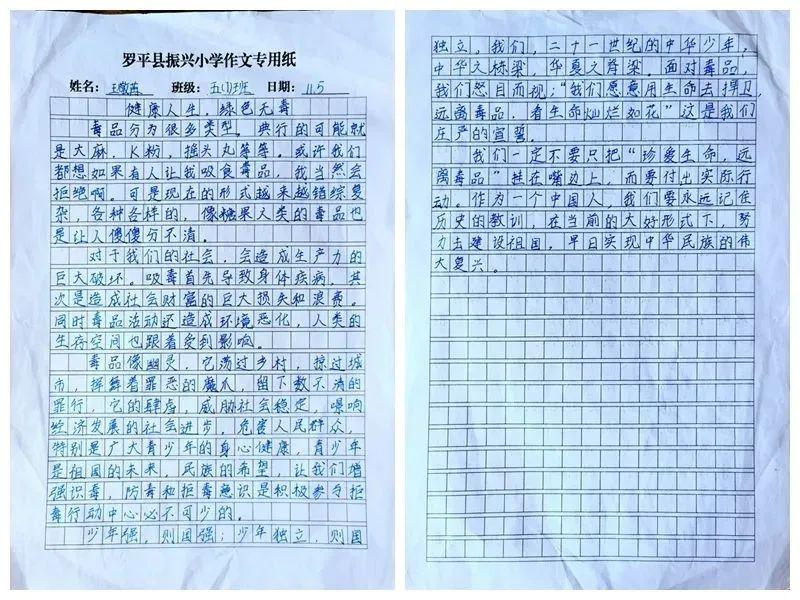 罗平县振兴小学作文专用纸
姓名： 班级：五(1)班 日期：11.5
健康人生，绿色无毒
毒品分为很多类型。典行的可能就
是大麻，K粉，摇头丸等等。或许我们
都想如果有人让我吸食毒品，我当然会
拒绝啊。可是现在的形式越来越错综复
杂，各种各样的，像糖果人类的毒品也
是让人傻傻分不清。
对于我们的社会，会造成生产力的
巨大破坏。吸毒首先导致身体疾病，其
次是造成社会财富的巨大损失和浪费。
同时毒品活动还造成环境恶化，人类的
生存空间也跟着受到影响。
毒品像幽灵，它荡过乡村，掠过城
市，挥舞着罪恶的魔爪，留下数不清的
罪行，它的肆虐，威胁社会稳定，影响
经济发展的社会进步，危害人民群众，
特别是广大青少年的身心健康，青少年
是祖国的未来，民族的希望，让我们增
强识毒，防毒和拒毒意识是积极参与拒
毒行动中心必不可少的。
少年强，则国强；少年独立，则国
独立，我们，二十一世纪的中华少年，
中华之栋梁，华夏之脊梁。面对毒品，
我们怒目而视；“我们愿意用生命去捍卫，
远离毒品，看生命灿烂如花”这是我们
庄严的宣誓。
我们一定不要只把“珍爱生命，远
离毒品”挂在嘴边上，而要付出实际行
动。作为一个中国人，我们要永远记住
历史的教训，在当前的大好形式下，努
力去建设祖国，早日实现中华民族的伟
大复兴。